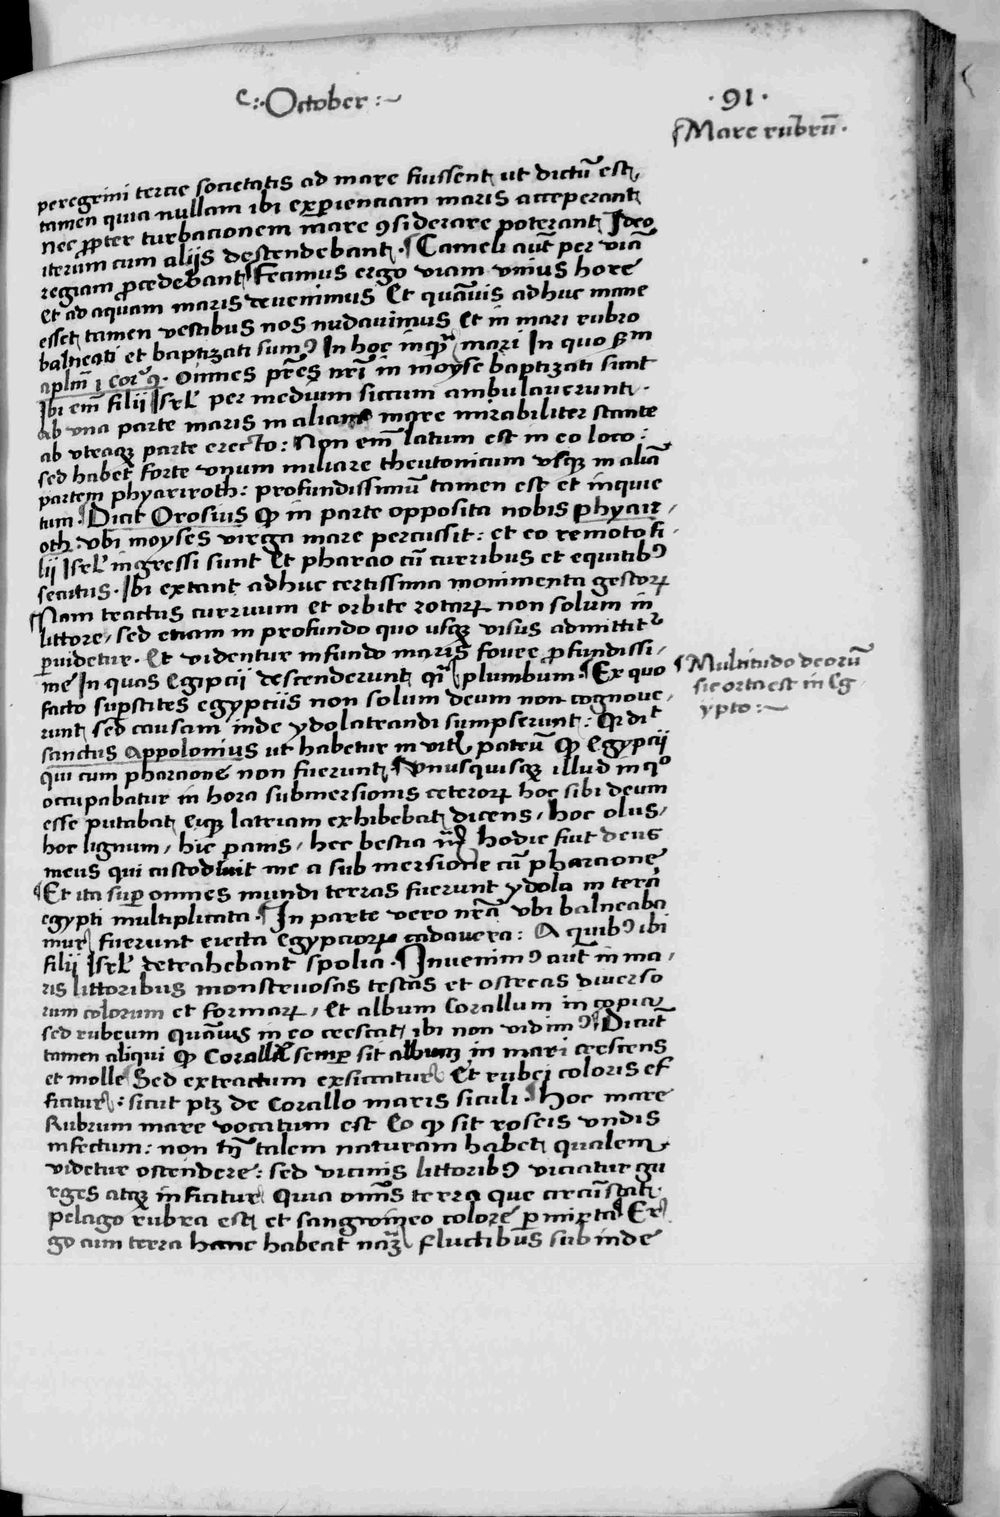 October
91
Mare rubrū
peregrini tercie societatis ad mare fuissent ut dictū est
tamen quia nullam ibi experienciam maris acceperant
nec ꝓpter turbacionem mare ꝯsiderare poterant Ideo
iterum cum alijs descendebant. Cameli aūt per viā
regiam ꝓcedebant Fecimus ergo viam vnius hore
Et ad aquam maris devenimus Et quāvis adhuc mane
esset tamen vestibus nos nudavimus Et in mari rubro
balneati et baptizati sumꝰ In hoc inqᷓ mari In quo scd̄m
aplm̄ 1 Corꝭ . omnes pr̄es nr̄i in moyse baptizati sunt
Ibi em̄ filii Isrl̄ per medium siccum ambulaverunt.
Ab vna parte maris in aliam mare mirabiliter stante
ab vtraqꝫ parte erecto: Non em̄ latum est in eo loco:
sed habet forte vnum miliare theutonicum vsqꝫ in aliā
partem phyariroth: profundissimū tamen est et inquie
tum. Dicit Orosius ꝙ in parte opposita nobis phyair
oth. vbi moyses virga mare percussit: et eo remoto fi
lij Isrl̄ ingressi sunt Et pharao cū curribus et equitibꝰ
secutus. Ibi extant adhuc certissima monimenta gestoꝝ
Nam tractus curruum et orbite rotaꝝ non solum in
littore, sed etiam in profundo quo usqꝫ visus admittitᷣ
ꝑvidetur. Et videntur in fundo maris fovee ꝓfundissi
me In quas Egipcii descenderunt qᷓi plumbum. Ex quo
facto suꝑstites egypciis non solum deum non cognove
runt sed causam inde ydolatrandi sumpserunt: Qꝛ dicit
sanctus Appolonius ut habetur in vitꝭ patrū ꝙ Egypcij
qui cum pharaone non fuerunt Vnusquisqꝫ illud in qͦ
occupabatur in hora submersionis ceteroꝝ hoc sibi deum
esse putabat Eiqꝫ latriam exhibebat dicens, hoc olus,
hoc lignum, hic panis, hec bestia Hodie fiut deus
meus qui custodivit me a sub mersione cū pharaone
Et ita suꝑ omnes mundi terras fuerunt ydola in terā
egypti multiplicata. In parte vero nr̄a vbi balneaba
mur fuerunt eiecta Egypcioꝝ cadavera: A quibꝰ ibi
filij Isrl̄ detrahebant spolia. Invenimꝰ aūt in ma
ris littoribus monstruosas testas et ostreas diverso
rum colorum et formaꝝ, Et album Corallum in copia
sed rubeum quāvis in eo crescat ibi non vidimꝰ Dicūt
tamen aliqui ꝙ Corallꝰ semꝑ sit album in mari crescens
et molle Sed extractum exsiccatur Et rubei coloris ef
ficitur: sicut ptꝫ de Corallo maris siculi. Hoc mare
Rubrum mare vocatum est Eo ꝙ sit roseis vndis
infectum: non tn̄ talem naturam habet qualem
videtur ostendere: sed vicinis littoribꝰ viciatur gu
rges atqꝫ inficitur Quia om̄s terra que circūstat
pelago rubra est et sangwineo colore ꝑmixta Er
go cum terra hanc habeat nāꝫ fluctibus sub inde
Multitudo deorū
sic orta est in Eg
ypto: